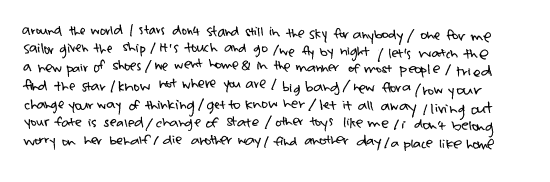 around the world / stars don't stand still in the sky for anybody / one for me
sailor given the ship / it's touch and go / we fly by night / let's watch the
a new pair of shoes / we went home & in the manner of most people / tried
find the star / know not where you are / big bang / new flora / row your
change your way of thinking / get to know her / let it all away / living out
your fate is sealed / change of state / other toys like me / i don't belong
worry on her behalf / die another way / find another day / a place like home